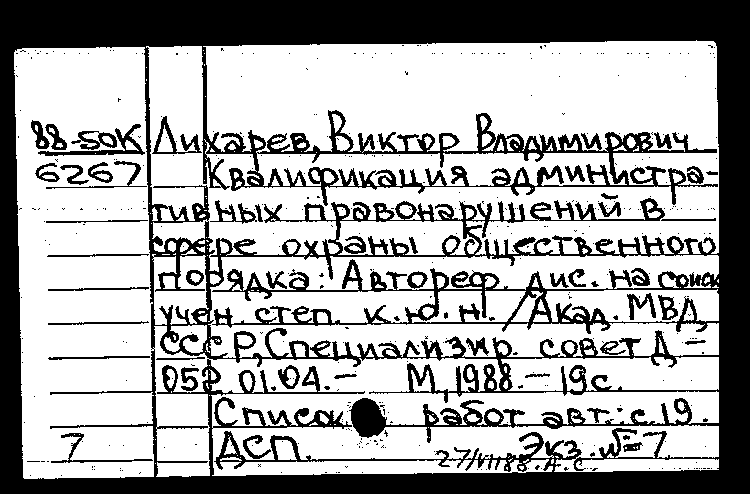 88-50К Лихарев, Виктор Владимирович
6267 Квалификация администра-
тивных правонарушений в
сфере охраны общественного
порядка: Автореф. дис. на соиск
учен. степ. к.ю.н. /Акад. МВД
СССР, Специализир. совет Д -
052.01.04.- М, 1988.- 19с.
Список работ авт.: с.19.
7 ДСП. Экз. №7
27/VII88. А.С.